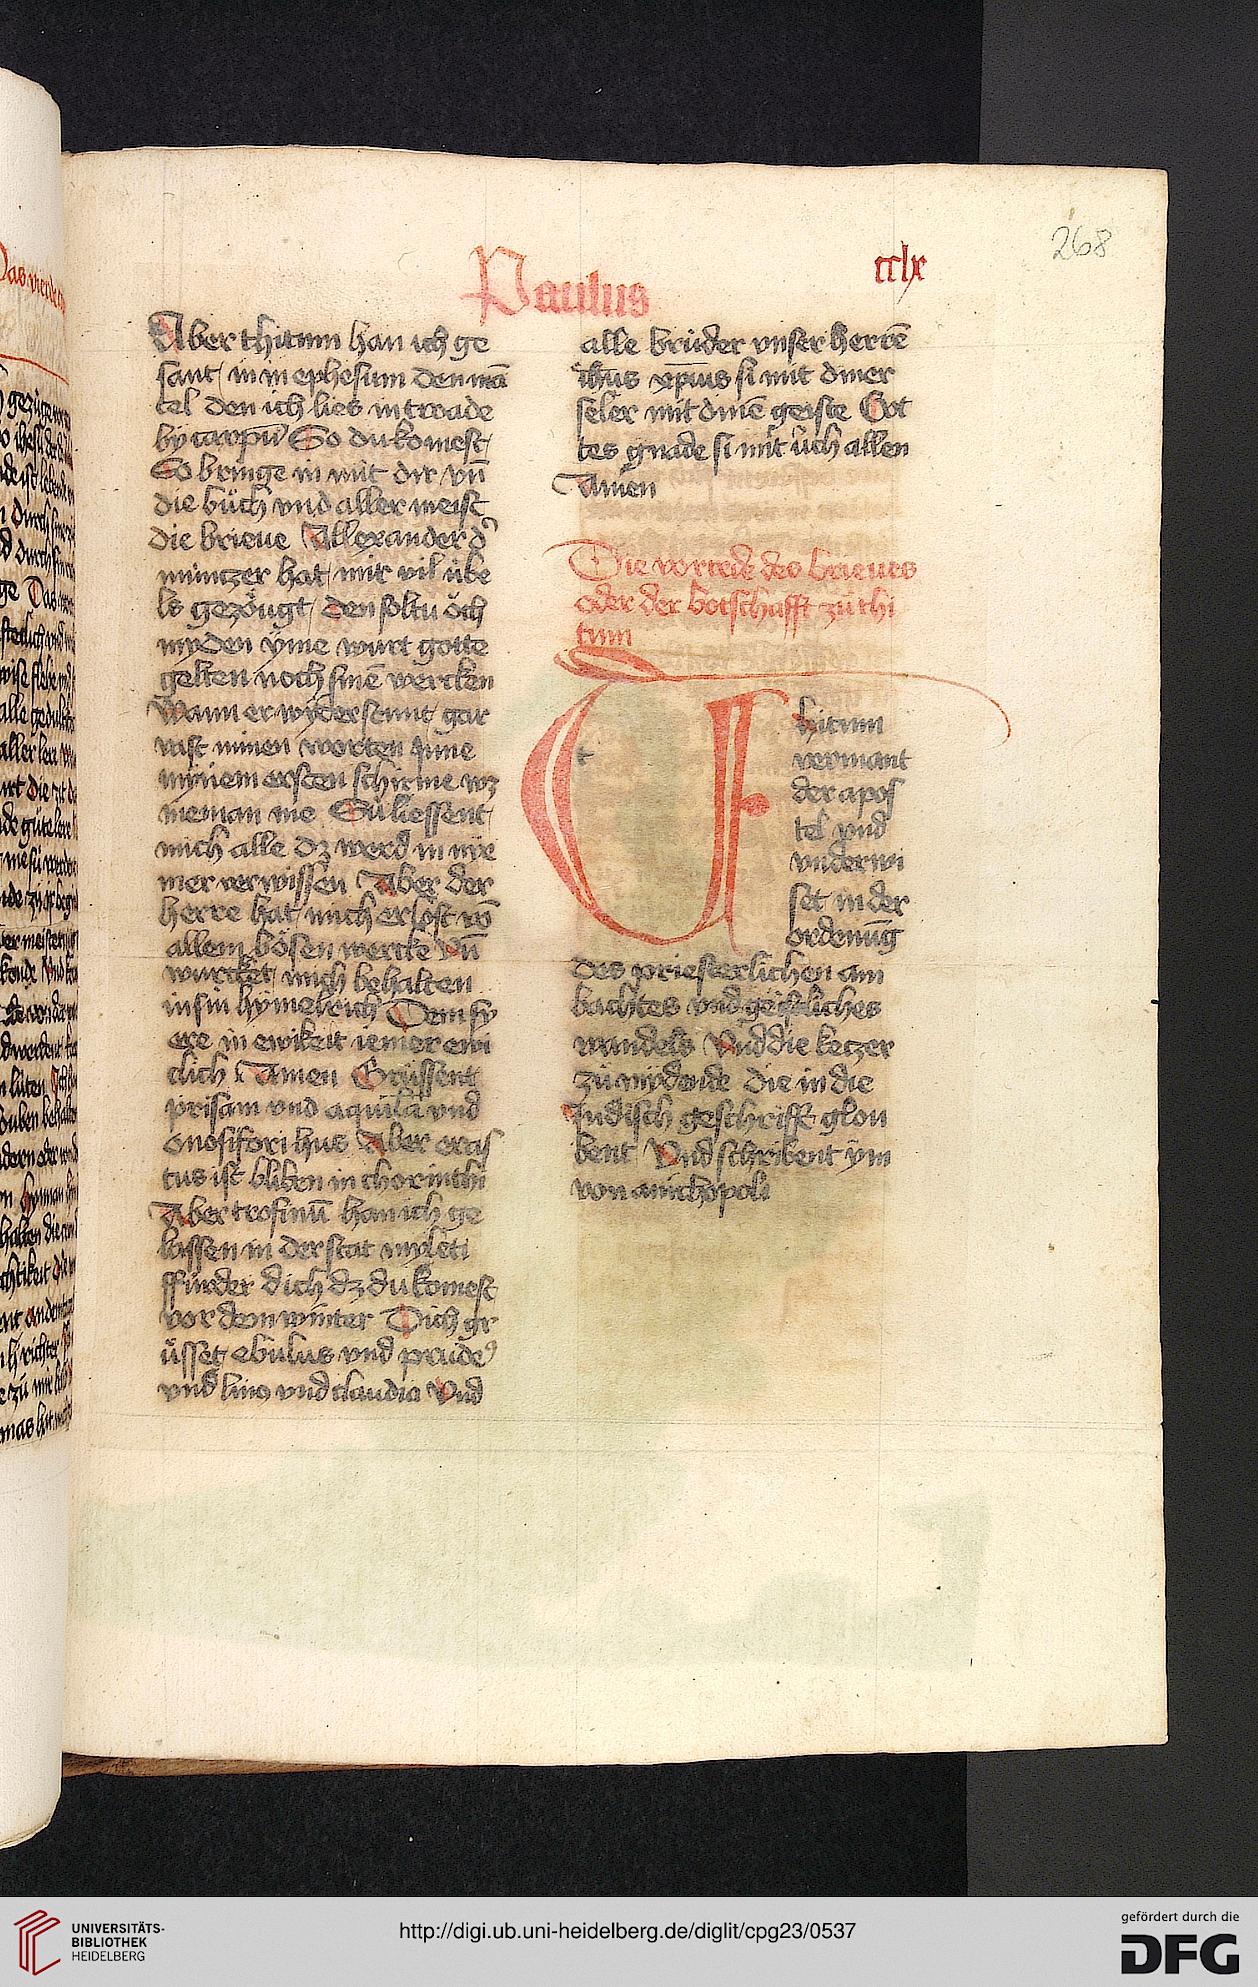 268
Paulus
cclx
Aber thitum han ich ge
sant / in in ephesum den mā
tel den ich lies in troade
by carpū So du komest
So bringe in mit dir vn̄
die bůch vnd aller meist
die brieue Allexander d'
müntzer hat mir vil übe
ls gezöugt / den soltu öch
myden yme wurt gotte
gelten noch sinē wercken
Wann er widerstunt gar
vast minen worten Inne
mynem ersten schirme wz
nieman me Sü liessent
mich alle dz werd in nye
mer verwissen Aber der
herre hat mich erlöst vō
allem bösen wercke Vn̄
wurcket mich behalten
in sin hymelrich Dem sy
ere in ewikeit iemer ewi
clich Amen Grüssent
priscam vnd aquila vnd
onosifori hus Aber eras
tus ist bliben in chorinthi
Aber trofimū han ich ge
lassen in der stat myleti
ffürder dich dz du komest
vor dem winter Dich gr
üsset ebulus vnd prude'
vnd linus vnd claudia Vnd
alle brüder vnser herrē
ih̄us xp̄ius si mit diner
seler mit dinē geiste Got
tes gnade si mit üch allen
Amen
Die vorrede des brieues
oder der botschafft zů thi
tum
t
T
hitum
vermant
der apos
tel vnd
vnderwi
set in der
ordenūg
des priesterlichen am
bachtes vnd geistliches
wandels Vnd die ketzer
zů mydende die in die
Judisch geschrifft glou
bent Vnd schribent ym
von anichopoli
UNIVERSITÄTS-
BIBLIOTHEK
HEIDELBERG
http://digi.ub.uni-heidelberg.de/diglit/cpg23/0537
gefördert durch die
DFG